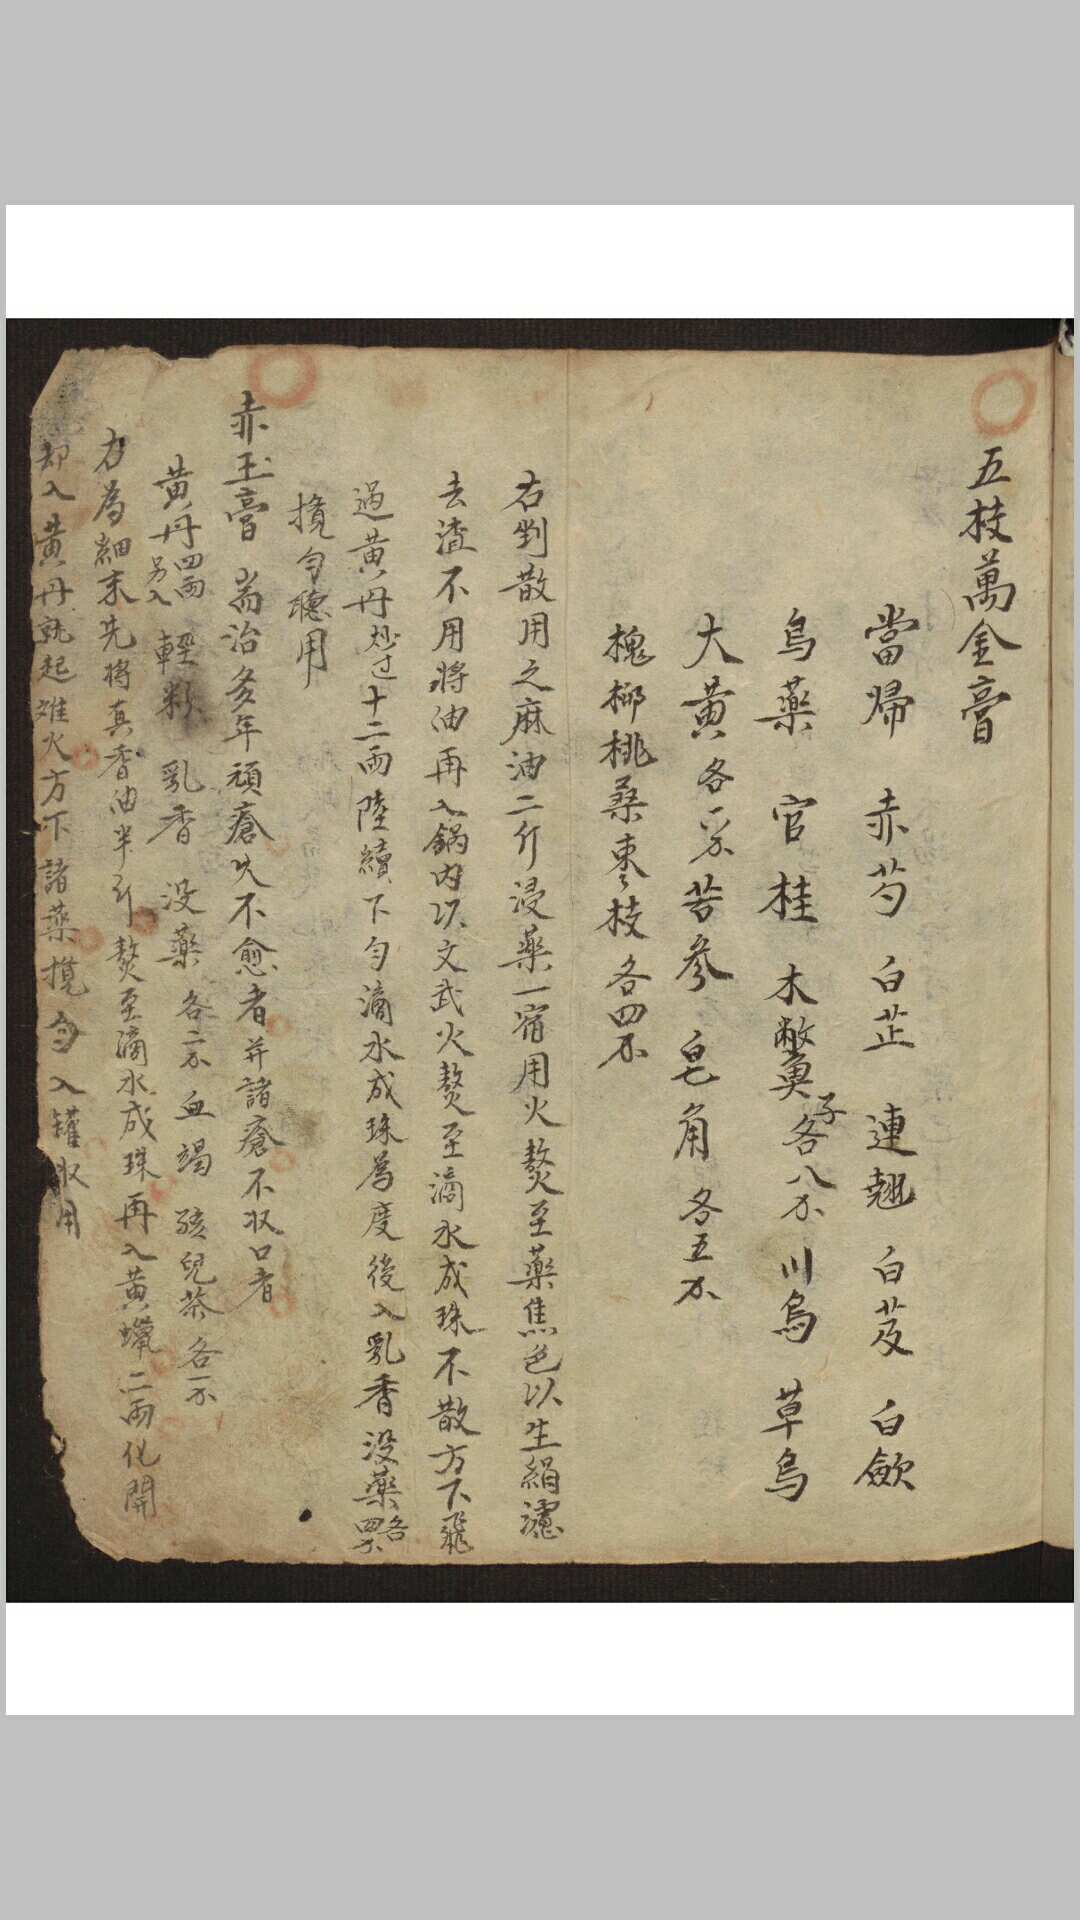 五枝萬金膏
當歸 赤芍 白芷 連翹 白芨 白歛
烏藥 官桂 木鱉子各八 川烏 草烏
大黃各 苦參 皂角 各五
槐柳桃桑棗枝各四
右剉散用之麻油二斤浸藥一宿用火熬至藥焦色以生絹濾
去渣不用將油再入鍋內以文武火熬至滴水成珠不散方下飛
過黃丹炒过十二兩陸續下勻滴水成珠為度後入乳香没藥各四
攪勻聽用
赤玉膏 耑治多年頑瘡久不愈者并諸瘡不収口者
黃丹四兩另入 輕粉 乳香 没藥 各二 血竭 孩兒茶各一
右為細末先將真香油半斤熬至滴水成珠再入黃蠟二兩化開
却入黃丹就起离火方下諸藥攪勻入罐収用